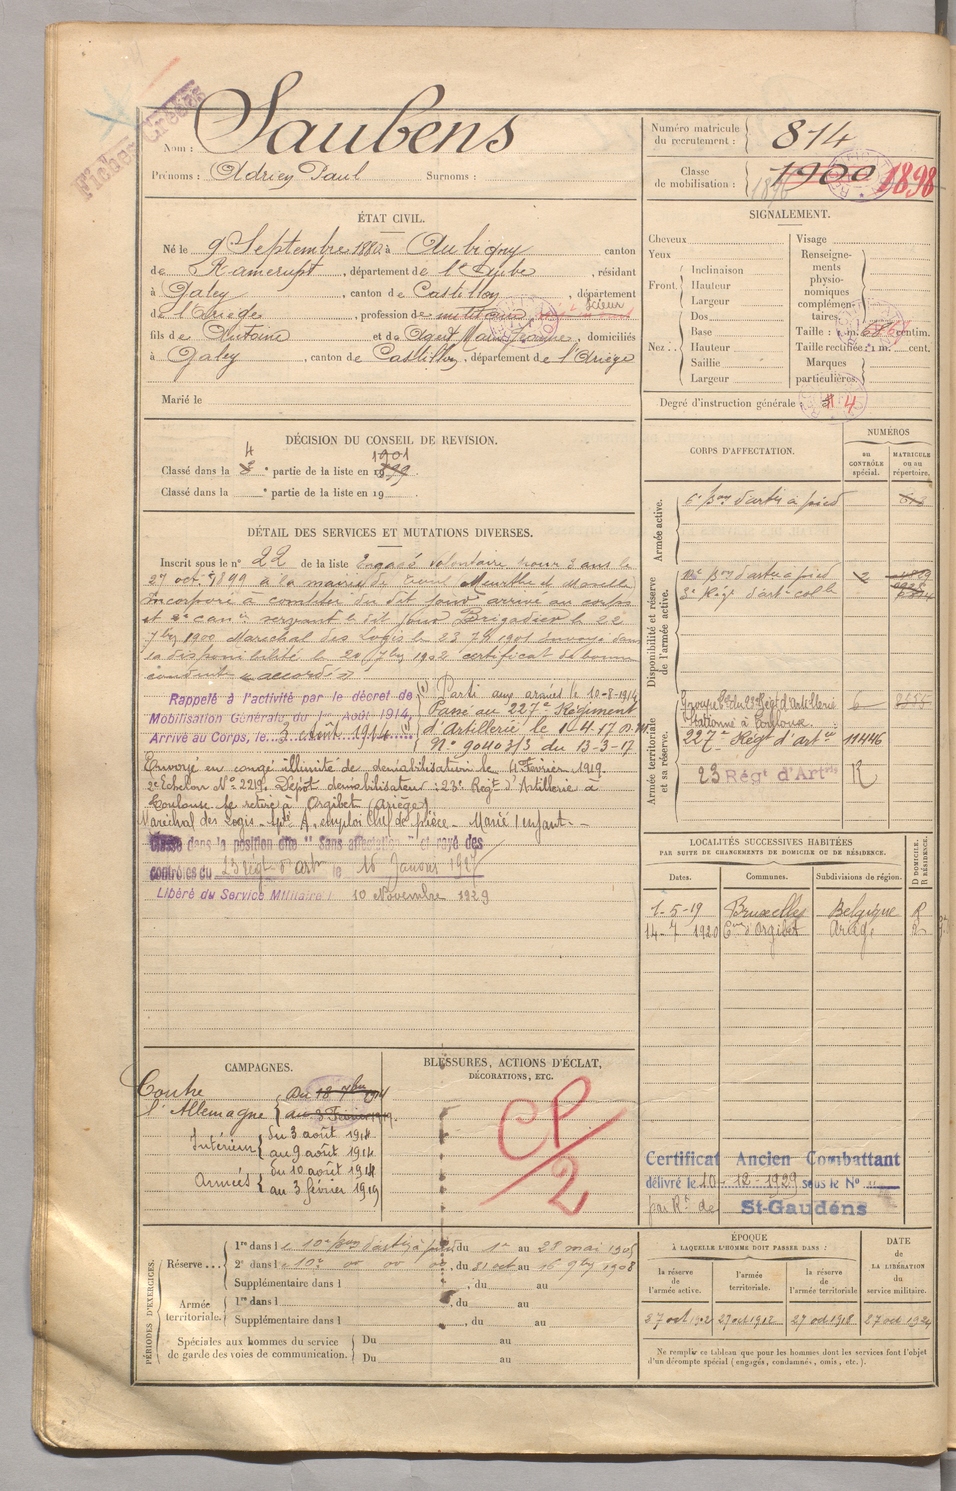 Fiches Créées
Nom : Saubens
Prénoms : Adrien Paul Surnoms :
Numéro matricule du recrutement : 814
Classe de mobilisation : 1900 1898
ÉTAT CIVIL.
Né le 9 Septembre 1880 à Aubigny canton
de Ramerupt, département de l'Aube, résidant
à Galey, canton de Castillon, département
de l'Ariège, profession de
fils de Antoine et de Agert Marie Jeanne, domiciliés
à Galey, canton de Castillon, département de l'Ariège
Marié le
SIGNALEMENT.
Cheveux
Yeux
Front. Inclinaison
Hauteur
Largeur
Nez : Dos
Base
Hauteur
Saillie
Largeur
Visage
Renseignements physionomiques complémentaires.
Taille : 1 m. centim.
Taille rectifiée : 1 m. cent.
Marques particulières.
Degré d'instruction générale : 4
DÉCISION DU CONSEIL DE REVISION.
4 1901
Classé dans la ° partie de la liste en 1899.
Classé dans la ° partie de la liste en 19
DÉTAIL DES SERVICES ET MUTATIONS DIVERSES.
Inscrit sous le n° 22 de la liste Engagé volontaire pour 3 ans le
27 oct. 1899 à la mairie de Meurthe et Moselle
Incorporé à compter du dit jour arrivé au corps
et 2e can. servant le dit jour Brigadier le 22
7bre 1900 Maréchal des Logis le 23 7bre 1901 Envoyé dans
la disponibilité le 20 7bre 1902 certificat de bonne
conduite accordé
Rappelé à l'activité par le décret de
Mobilisation Générale du 1er Août 1914,
Arrivé au Corps, le 3 août 1914
Parti aux armées le 10-8-1914
Passé au 227e Régiment
d'Artillerie le 1-4-17
N° 9040 3/3 du 13-3-17
Envoyé en congé illimité de démobilisation le 4 Février 1919.
2e Echelon N° 2219. Dépôt démobilisateur : 23e Régt d'Artillerie à
Toulouse. Se retire à Orgibet (Ariège)
Maréchal des Logis - Apte A, emploi Chef de pièce - Marié 1 enfant -
Classé dans la position dite " Sans affectation " et rayé des
contrôles du 23 régt d'artie le 16 Janvier 1927
Libéré du Service Militaire le 10 Novembre 1929
CORPS D'AFFECTATION.
NUMÉROS
au CONTRÔLE spécial.
MATRICULE ou au répertoire.
Armée active.
6e Bon d'artie à pied
Disponibilité et réserve de l'armée active.
10e Bon d'artie à pied 2
3e Régt d'artie colle
Armée territoriale et sa réserve.
Groupe du 23e Régt d'Artillerie 6
Stationné à Toulouse.
227e Régt d'artie 11446
23 Régt d'Artrie R
LOCALITÉS SUCCESSIVES HABITÉES
PAR SUITE DE CHANGEMENTS DE DOMICILE OU DE RÉSIDENCE.
D DOMICILE. R RÉSIDENCE.
Dates. Communes. Subdivisions de région.
1-5-19 Bruxelles Belgique R
14-7 1920 Orgibet Arièg.
CAMPAGNES.
Contre l'Allemagne
du 18 7bre 1914
au 3 Février 1919.
Intérieur du 3 août 1914
au 9 août 1914
Armées du 10 août 1914
au 3 février 1919
BLESSURES, ACTIONS D'ÉCLAT,
DÉCORATIONS, ETC.
CP/2
Certificat Ancien Combattant
délivré le 10-12-1929 sous le N°
par St-Gaudens
PÉRIODES D'EXERCICES.
Réserve... 1re dans l e 10e Bon d'artie à pied du 1er au 28 mai 1905
2e dans l e 10e do do do, du 31 oct au 16 9bre 1908
Supplémentaire dans l , du au
Armée territoriale. 1re dans l , du au
Supplémentaire dans l , du au
Spéciales aux hommes du service de garde des voies de communication. Du au
Du au
ÉPOQUE
À LAQUELLE L'HOMME DOIT PASSER DANS :
la réserve de l'armée active.
l'armée territoriale.
la réserve de l'armée territoriale
DATE DE LA LIBÉRATION du service militaire.
27 oct 1902 27 oct 1912 27 oct 1918 27 oct 1924
Ne remplir ce tableau que pour les hommes dont les services font l'objet
d'un décompte spécial (engagés, condamnés, omis, etc.).